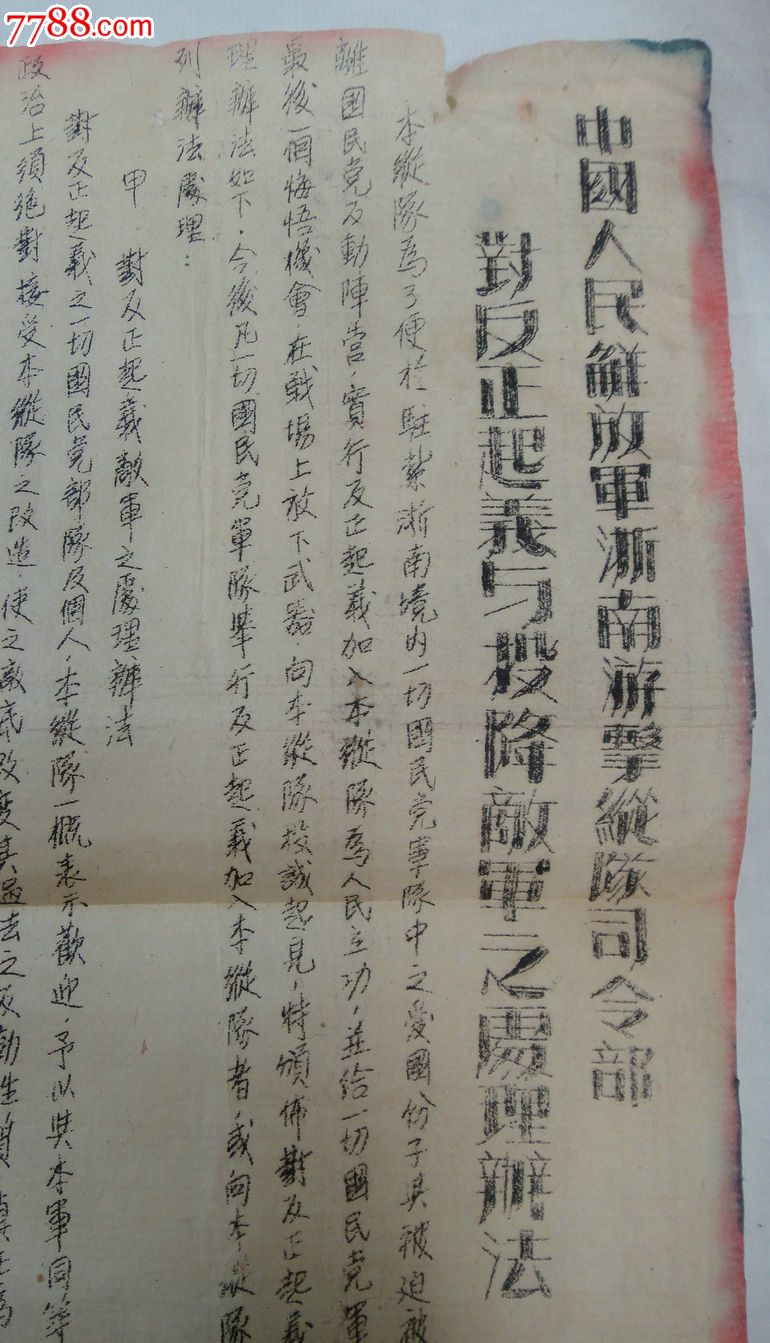 7788.com
中國人民解放軍浙南游擊縱隊司令部
對反正起義与投降敵軍之處理辦法
本縱隊為了便於駐紮浙南境内一切國民党軍隊中之愛國份子與被迫被
離國民党反動陣营，實行反正起義加入本縱隊為人民立功，並给一切國民党軍
最後一個悔悟機會，在戰場上放下武器，向本縱隊投誠起見，特頒佈對反正起義
理辦法如下，今後凡一切國民党軍隊舉行反正起義加入本縱隊者，或向本縱隊
列辦法處理：
甲 對反正起義敵軍之處理辦法
對反正起義之一切國民党部隊及個人，本縱隊一概表示歡迎，予以與本軍同等
政治上須絶對接受本縱隊之改造，使之澈底改變其過去之反動性質